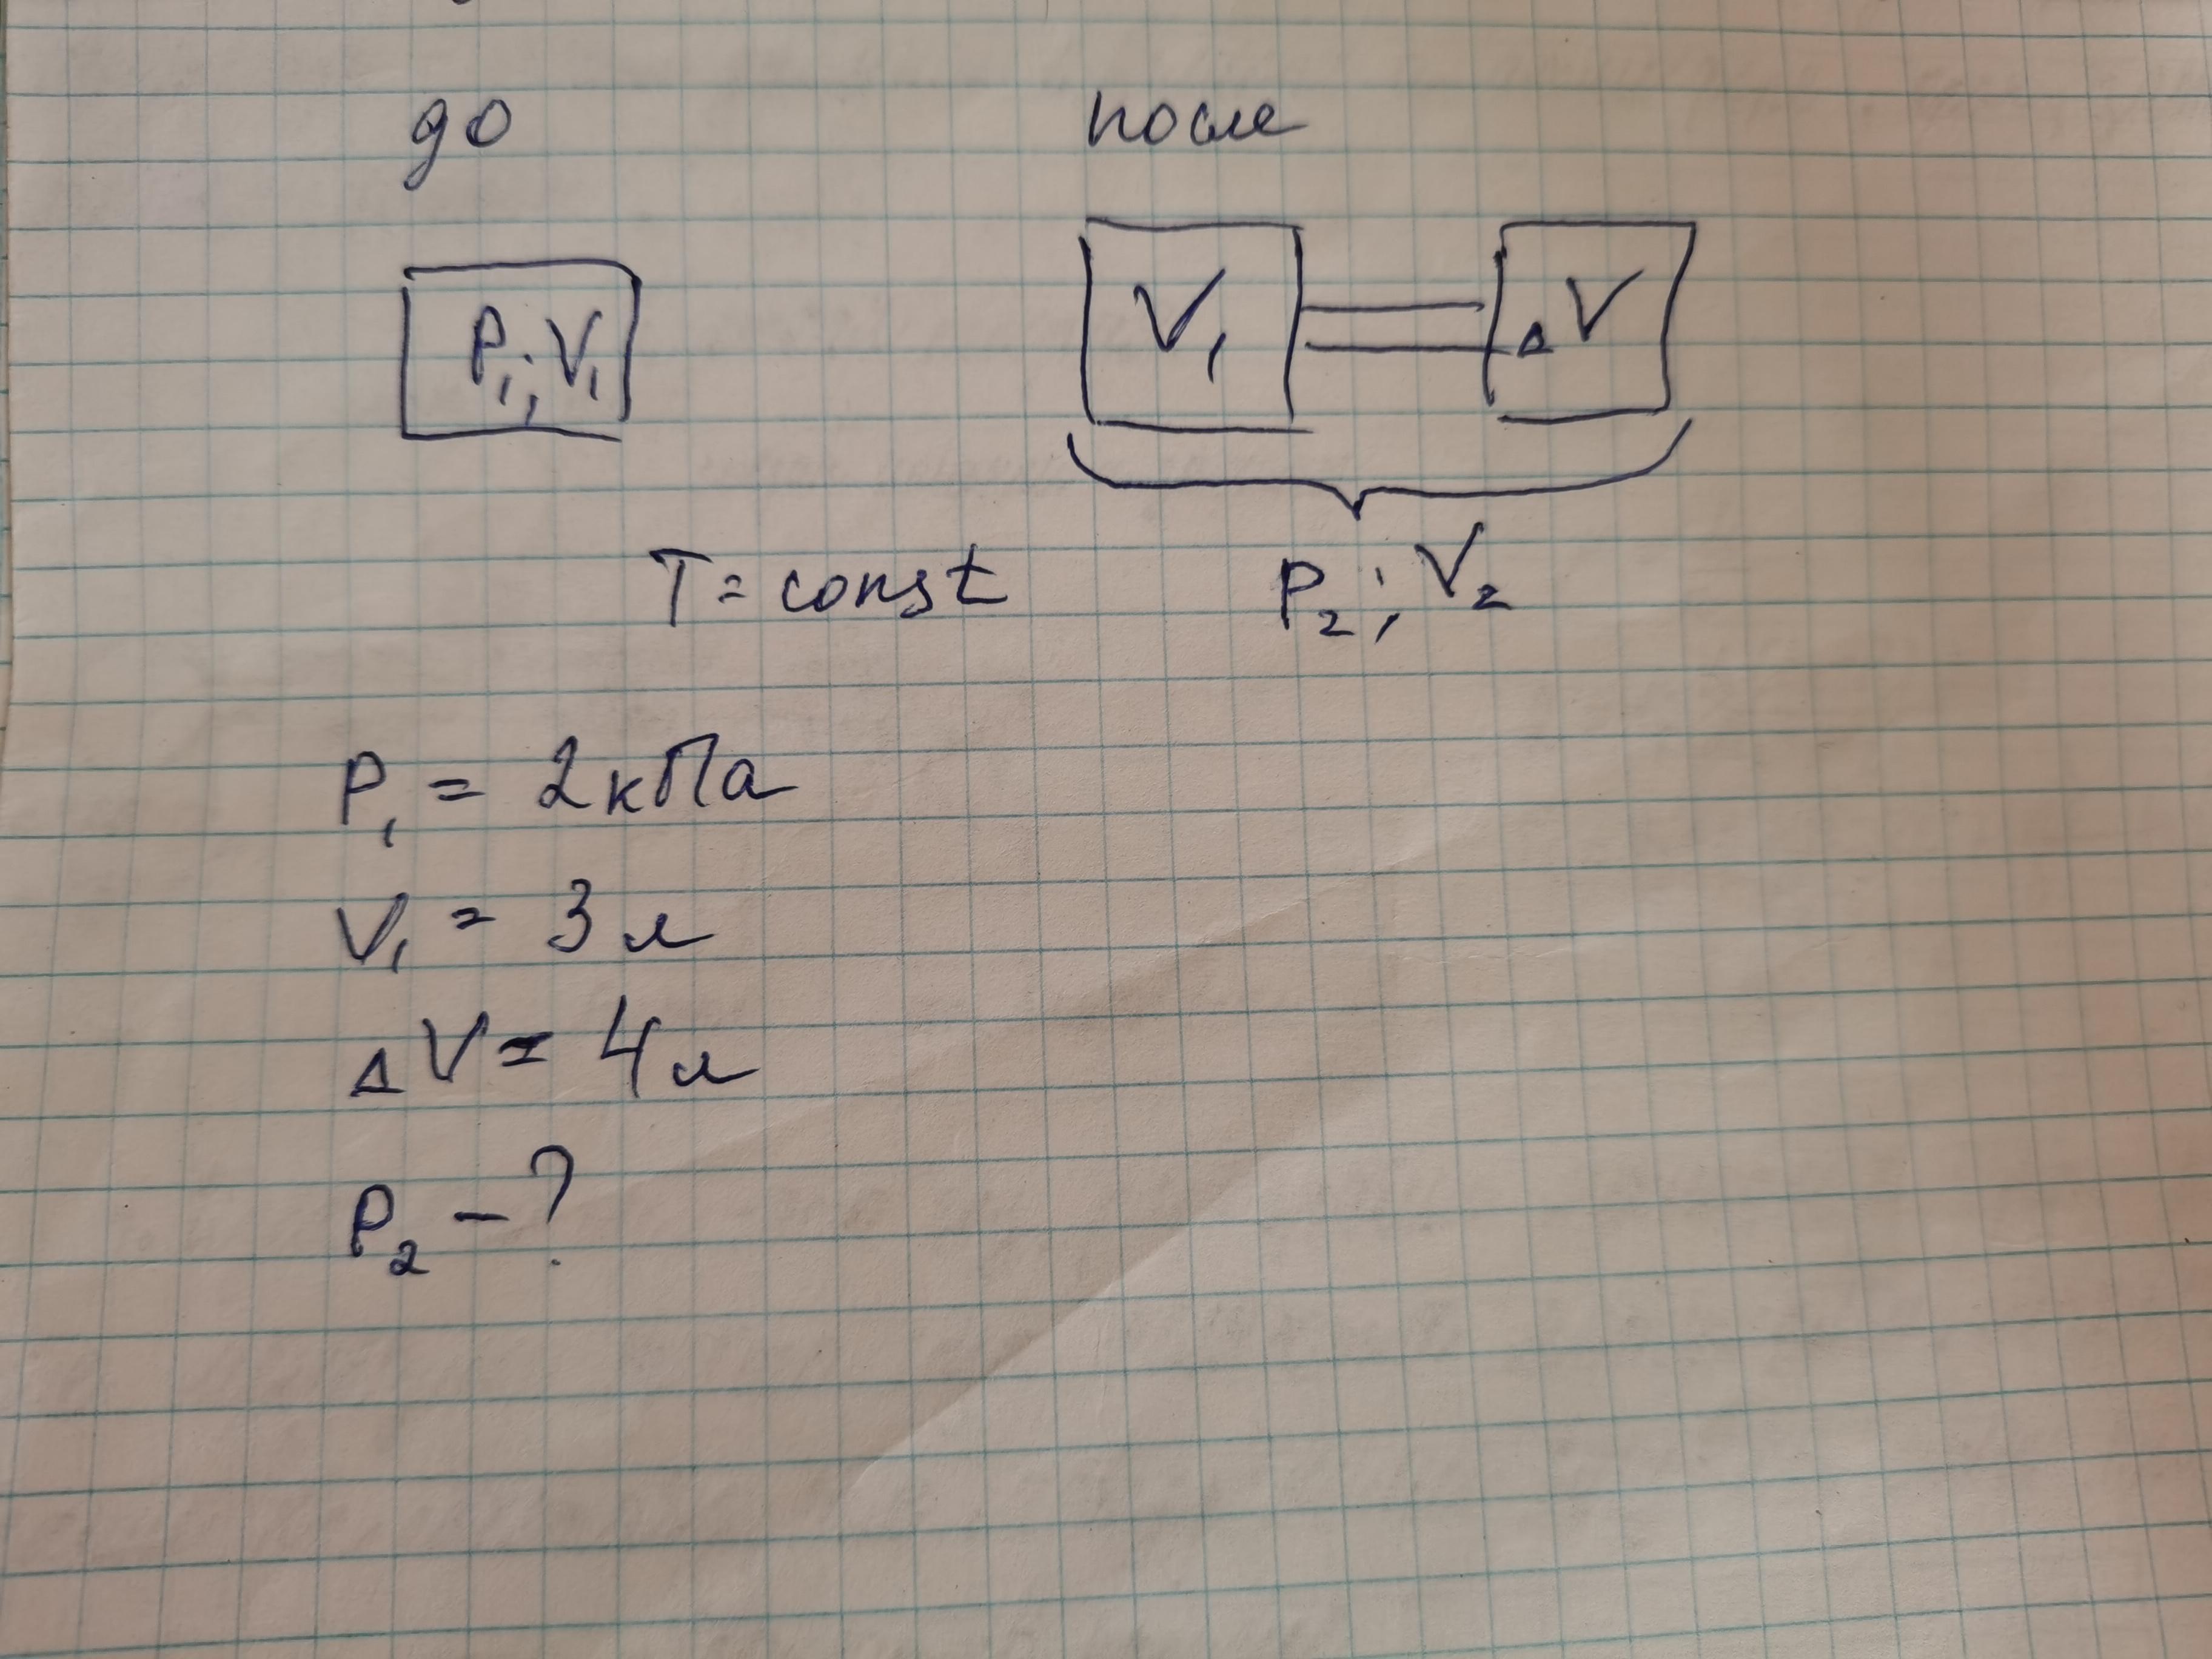 до
после
P₁; V₁
V₁
ΔV
T = const
P₂; V₂
P₁ = 2 кПа
V₁ = 3 л
ΔV = 4 л
P₂ - ?